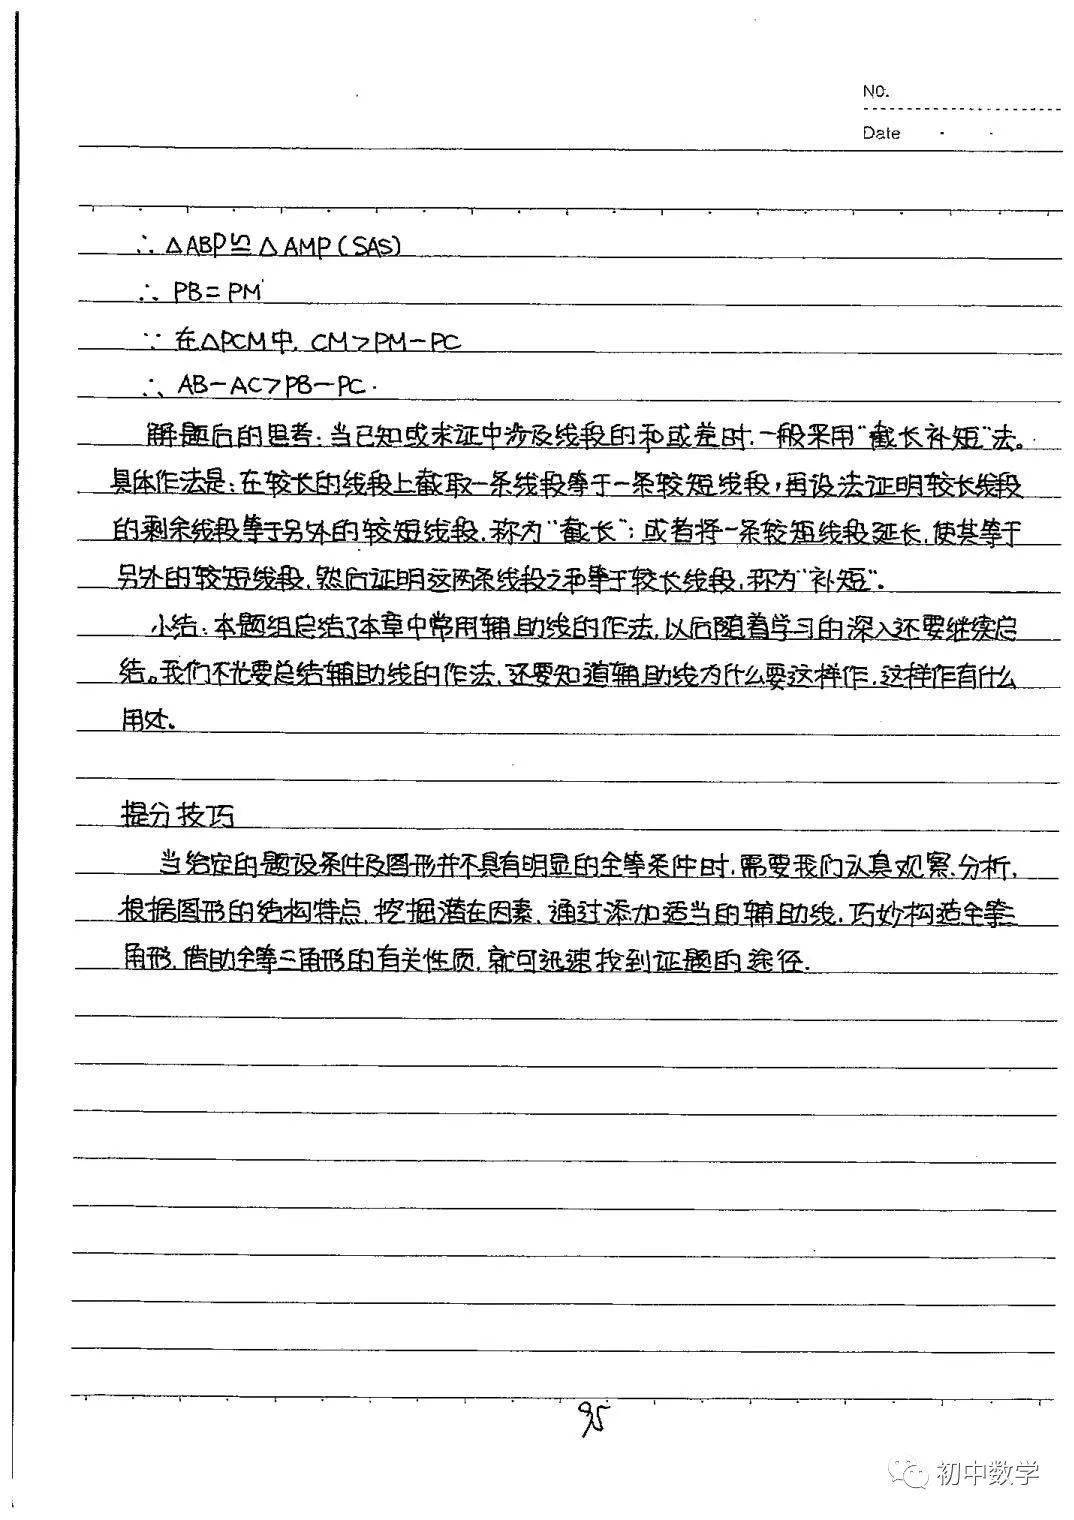 NO.
Date
∴ △ABP≌△AMP(SAS)
∴ PB=PM
∵ 在△PCM中, CM>PM-PC
∴ AB-AC>PB-PC.
解题后的思考:当已知或求证中涉及线段的和或差时,一般采用“截长补短”法。
具体作法是:在较长的线段上截取一条线段等于一条较短线段,再设法证明较长线段
的剩余线段等于另外的较短线段,称为“截长”;或者将一条较短线段延长,使其等于
另外的较短线段,然后证明这两条线段之和等于较长线段,称为“补短”.
小结:本题组总结了本章中常用辅助线的作法,以后随着学习的深入还要继续总
结。我们不光要总结辅助线的作法,还要知道辅助线为什么要这样作,这样作有什么
用处。
提分技巧
当给定的题设条件及图形并不具有明显的全等条件时,需要我们认真观察、分析,
根据图形的结构特点,挖掘潜在因素,通过添加适当的辅助线,巧妙构造全等三
角形,借助全等三角形的有关性质,就可迅速找到证题的途径.
95
初中数学